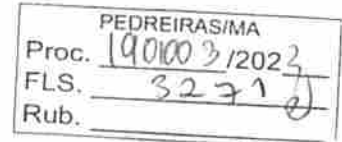 PEDREIRAS/MA
Proc. 1901003/2023
FLS. 3271
Rub.